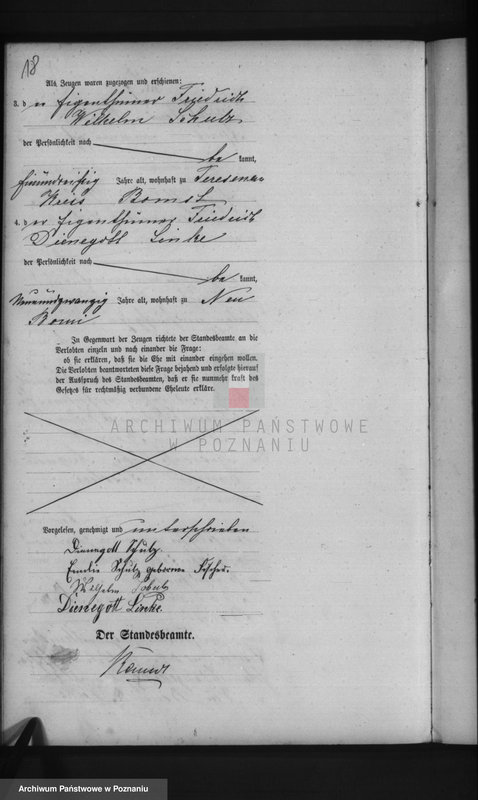 18
Als Zeugen waren zugezogen und erschienen:
3. der Eigenthümer Friedrich
Wilhelm Schulz
der Persönlichkeit nach
be kannt,
Jahre alt, wohnhaft zu
Kreis Bomst
4. der Eigenthümer Friedrich
Dienegott Linke
der Persönlichkeit nach
be kannt,
Neunundzwanzig Jahre alt, wohnhaft zu Neu
In Gegenwart der Zeugen richtete der Standesbeamte an die
Verlobten einzeln und nach einander die Frage:
ob sie erklären, daß sie die Ehe mit einander eingehen wollen.
Die Verlobten beantworteten diese Frage bejahend und erfolgte hierauf
der Ausspruch des Standesbeamten, daß er sie nunmehr kraft des
Gesetzes für rechtmäßig verbundene Eheleute erkläre.
ARCHIWUM PAŃSTWOWE
W POZNANIU
Vorgelesen, genehmigt und unterschrieben
Dienegott Schulz.
Emilie Schulz geborene Fischer.
Wilhelm Schulz
Dienegott Linke.
Der Standesbeamte.
Archiwum Państwowe w Poznaniu